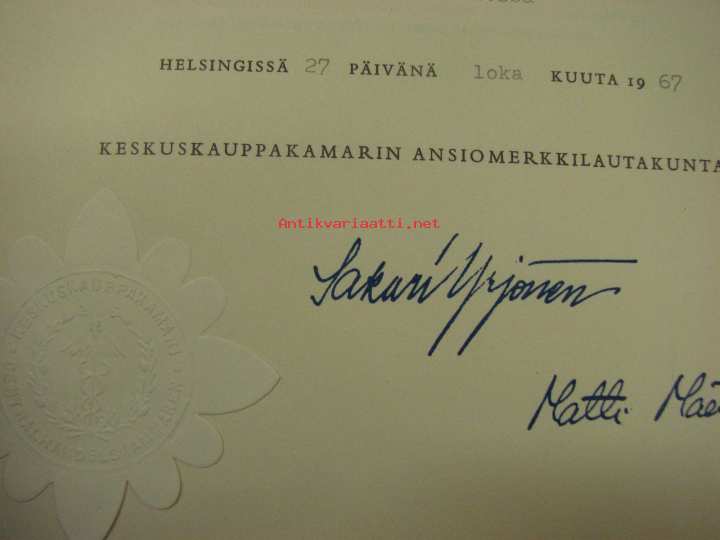 HELSINGISSÄ 27 PÄIVÄNÄ loka KUUTA 19 67
KESKUSKAUPPAKAMARIN ANSIOMERKKILAUTAKUNTA
Antikvariaatti.net
Sakari Yrjönen
Matti Mäe
KESKUSKAUPPAKAMARI
CENTRALHANDELSKAMMAREN